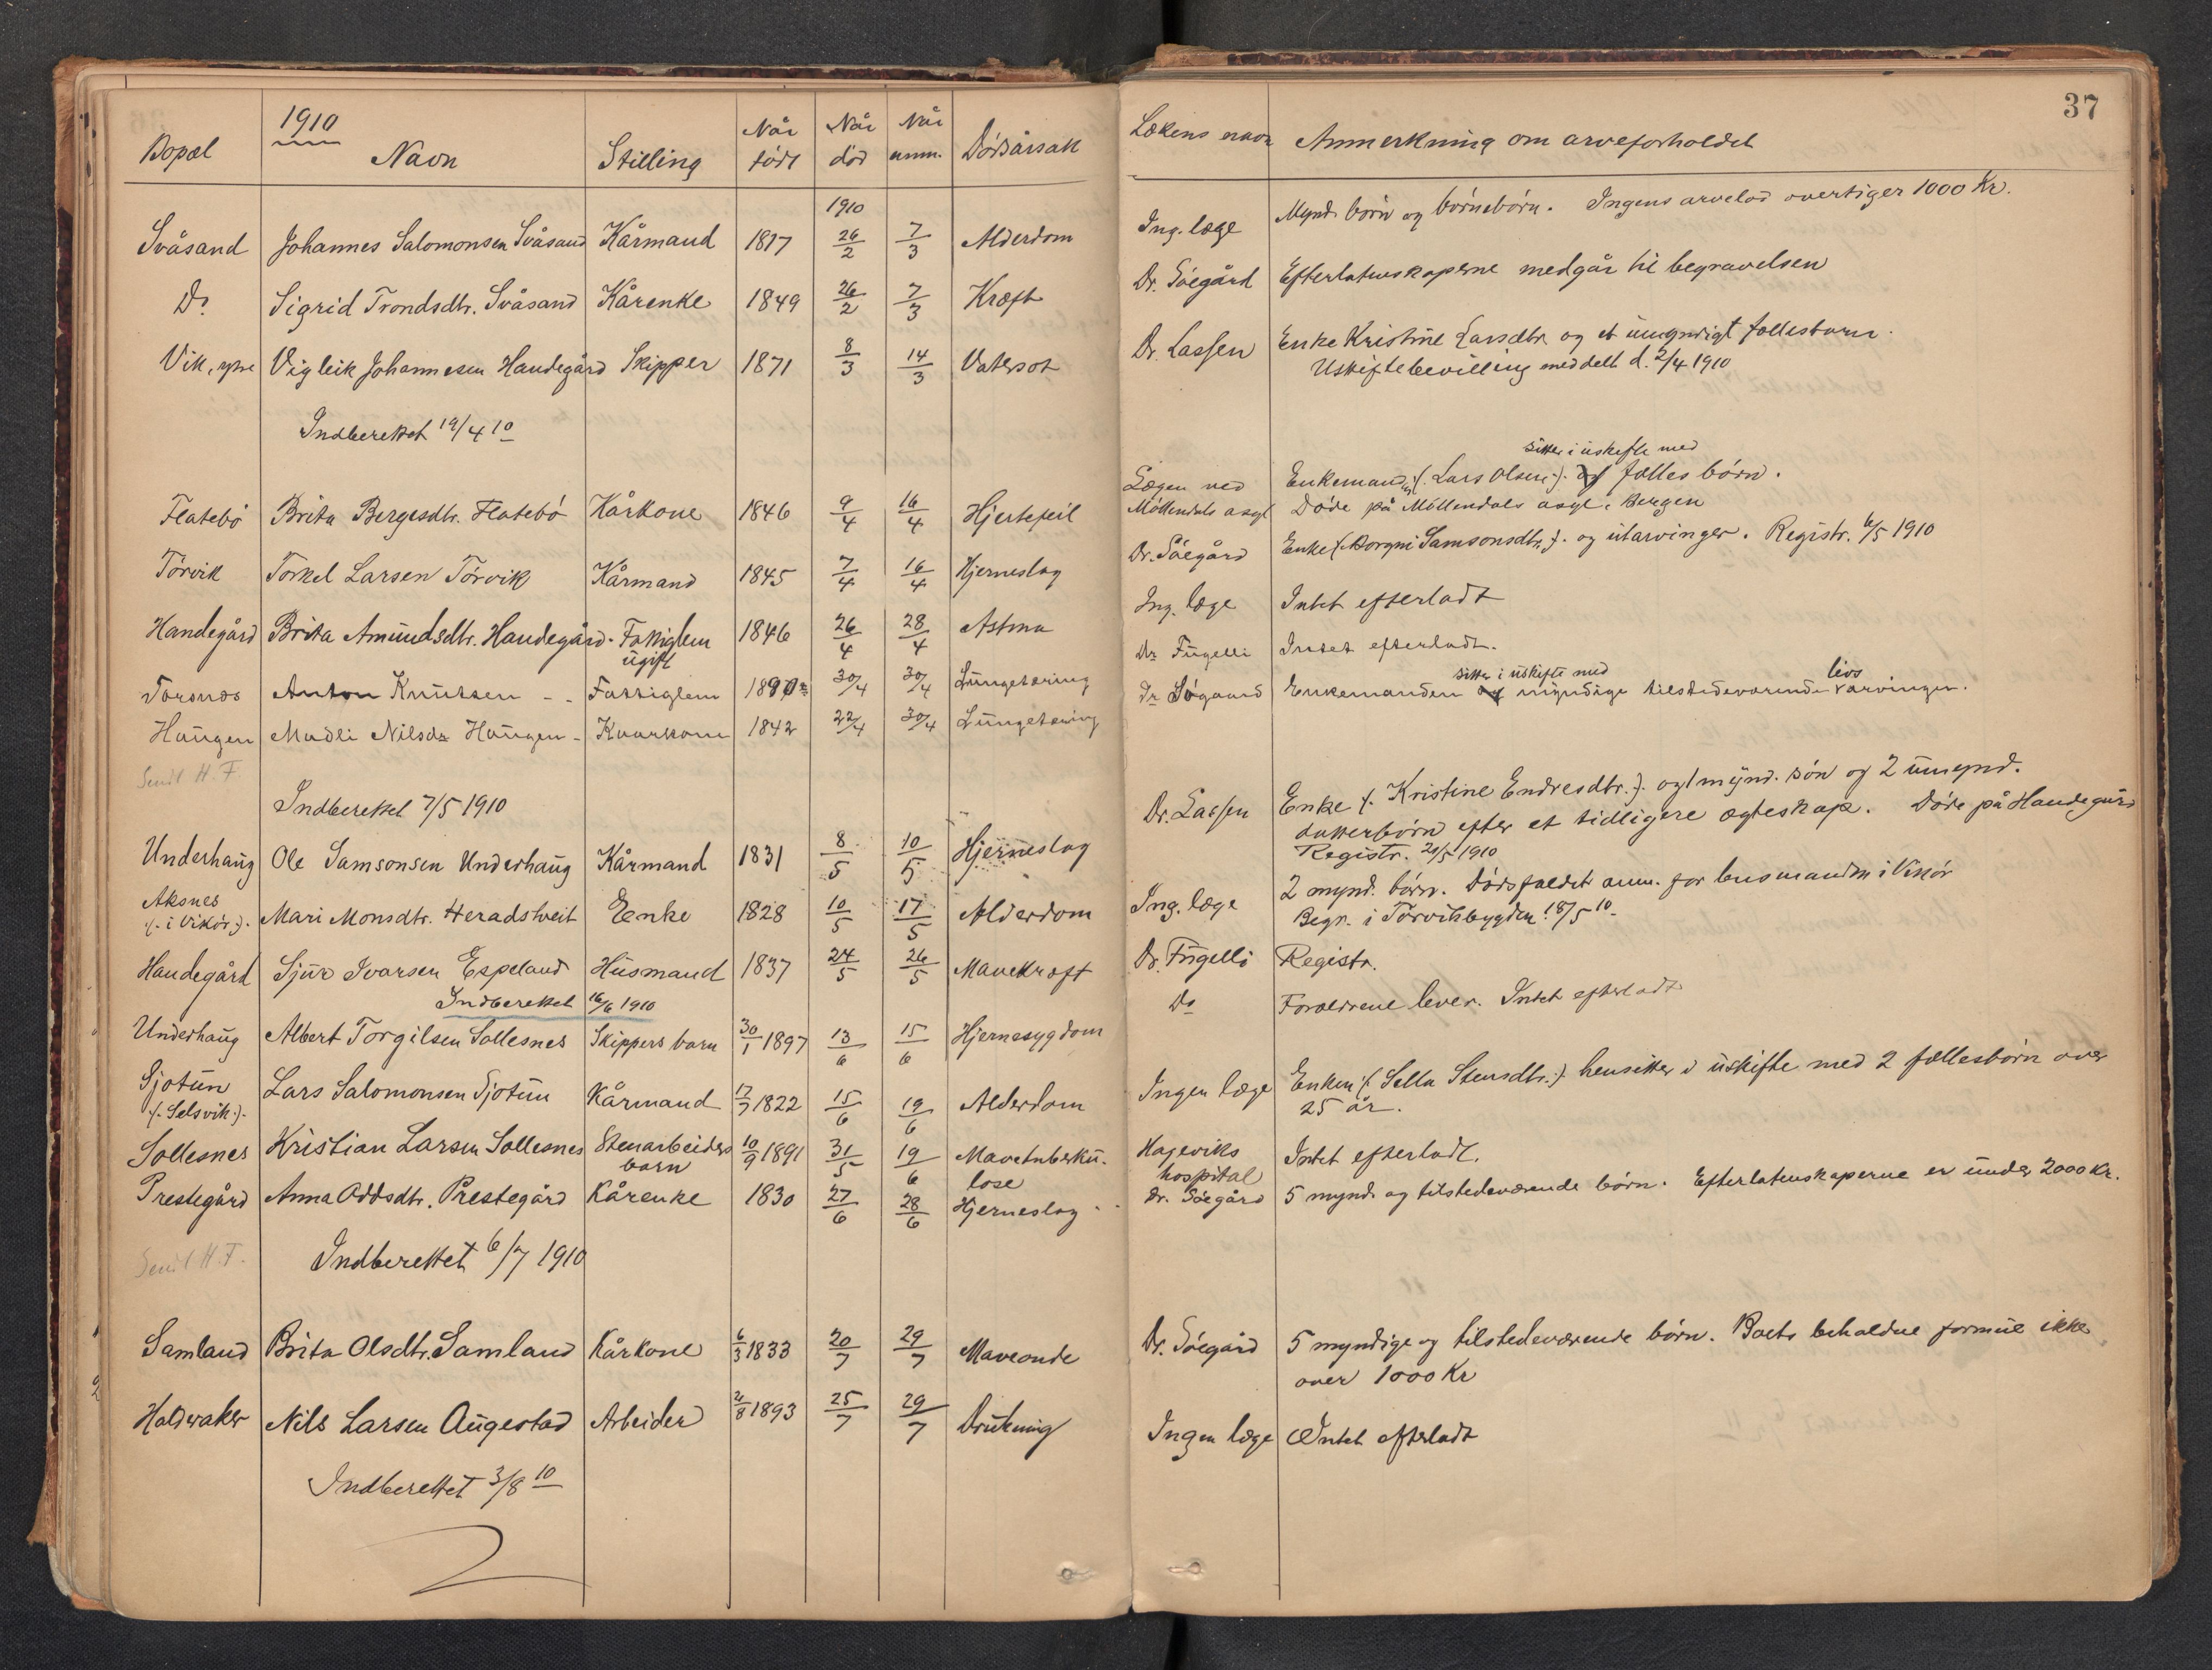 1910
Bopæl Navn Stilling Når født Når død Når anm. Dødsårsak
1910
Svåsand Johannes Salomonsen Svåsand Kårmand 1817 26/2 7/3 Alderdom
Do Sigrid Trondsdtr. Svåsand Kårenke 1849 26/2 7/3 Kræft
Vik, ytre Vigleik Johannesen Handegård Skipper 1871 8/3 14/3 Vatersot
Indberettet 19/4 10
Flatebø Brita Bergesdtr. Flatebø Kårkone 1846 9/4 16/4 Hjertefeil
Tørvik Torkel Larsen Tørvik Kårmand 1845 7/4 16/4 Hjerneslag
Handegård Brita Amundsdtr. Handegård. Fattiglem 1846 26/4 28/4 Astma
ugift
Torsnes Anton Knutsen - - Fattiglem 30/4 30/4 Lungetæring
Haugen Madli Nilsdr Haugen - Kaarkone 1842 22/4 30/4 Lungetæring
Sendt H. F.
Indberettet 7/5 1910
Underhaug Ole Samsonsen Underhaug Kårmand 1831 8/5 10/5 Hjerneslag
Aksnes
(: i Vikør :) Mari Monsdtr. Heradstveit Enke 1828 10/5 17/5 Alderdom
Handegård Sjur Ivarsen Espeland Husmand 1837 24/5 26/5 Mavekræft
Indberettet 16/6 1910
Underhaug Albert Torgilsen Sollesnes Skippers barn 30/1 1897 13/6 15/6 Hjernesygdom
Gjotun Lars Salomonsen Gjotun Kårmand 17/7 1822 15/6 19/6 Alderdom
(: Selsvik :)
Sollesnes Kristian Larsen Sollesnes Stenarbeiders 10/9 1891 31/5 19/6 Mavetuberku-
barn lose
Prestegård Anna Oddsdtr. Prestegård Kårenke 1830 27/6 28/6 Hjerneslag
Sendt H. F. Indberettet 6/7 1910
Samland Brita Olsdtr. Samland Kårkone 6/3 1833 20/7 29/7 Maveonde
Halderaker Nils Larsen Augestad Arbeider /8 1893 25/7 29/7 Drukning
Indberettet 3/8 10
37
Lækens navn Anmerkning om arveforholdet
Ing. læge Mynd. børn og børnebørn. Ingens arvelod overstiger 1000 Kr.
Dr. Søegård Efterlatenskaperne medgår til begravelsen
Dr. Lassen Enke Kristine Larsdtr. og et umyndigt fællesbarn.
Uskiftebevilling meddelt d. 2/4 1910
sitter i uskifte med
Lægen ved Enkemand (: Lars Olsen :) og fælles børn.
Møllendals asyl Døde på Møllendals asyl, Bergen
Dr. Søegård Enke (: Borgni Samsonsdtr. :) og utarvinger. Registr. 6/5 1910
Ing. læge Intet efterladt
Dr Fugelli Intet efterladt.
sitter i uskifte med livs
Dr Søgaard Enkemanden og myndige tilstedeværende arvinger.
Dr. Lassen Enke (: Kristine Endresdtr. :) og 1 mynd. søn og 2 umynd.
datterbørn efter et tidligere ægteskap. Døde på Handegård
Registr. 21/5 1910
Ing. læge 2 mynd. børn. Dødsfaldet anm. for lensmanden i Vikør
Begr. i Tørvikbygden 18/5 10
Dr. Fugelli Registr.
Do Forældrene lever. Intet efterladt
Ingen læge Enken (: Sella Stensdtr. :) hensitter i uskifte med 2 fællesbørn over
25 år.
Hageviks
hospital Intet efterladt.
Dr. Søegård 5 mynd. og tilstedeværende børn. Efterlatenskaperne er under 2000 kr.
Dr. Søegård 5 myndige og tilstedeværende børn. Boets beholdne formue ikke
over 1000 Kr
Ingen læge Intet efterladt